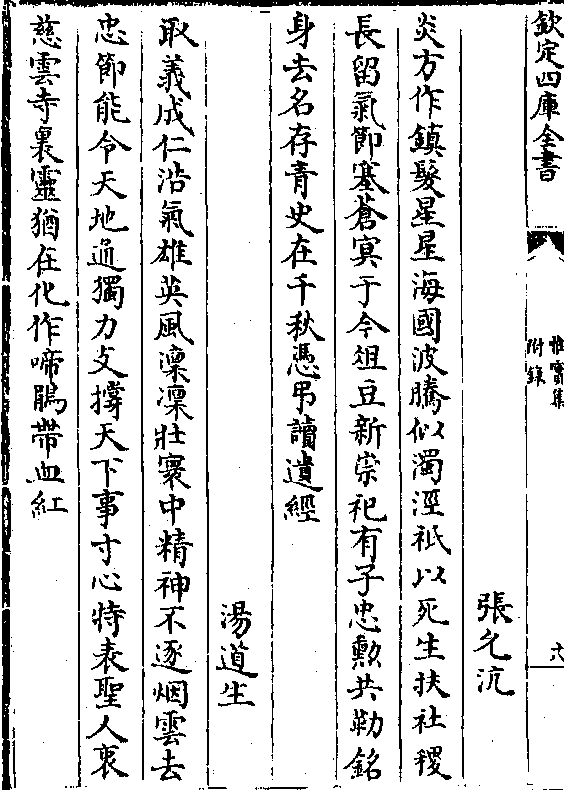 欽定四庫全書
惟實集
附錄
六
張允沆
炎方作鎮髮星星海國波騰似濁涇祇以死生扶社稷
長留氣節塞蒼冥于今俎豆新崇祀有子忠勲共勒銘
身去名存青史在千秋憑弔讀遺經
湯道生
取義成仁浩氣雄英風凛凛壯寰中精神不逐烟雲去
忠節能令天地通獨力支撐天下事寸心特表聖人衷
慈雲寺裏靈猶在化作啼鵑帶血紅